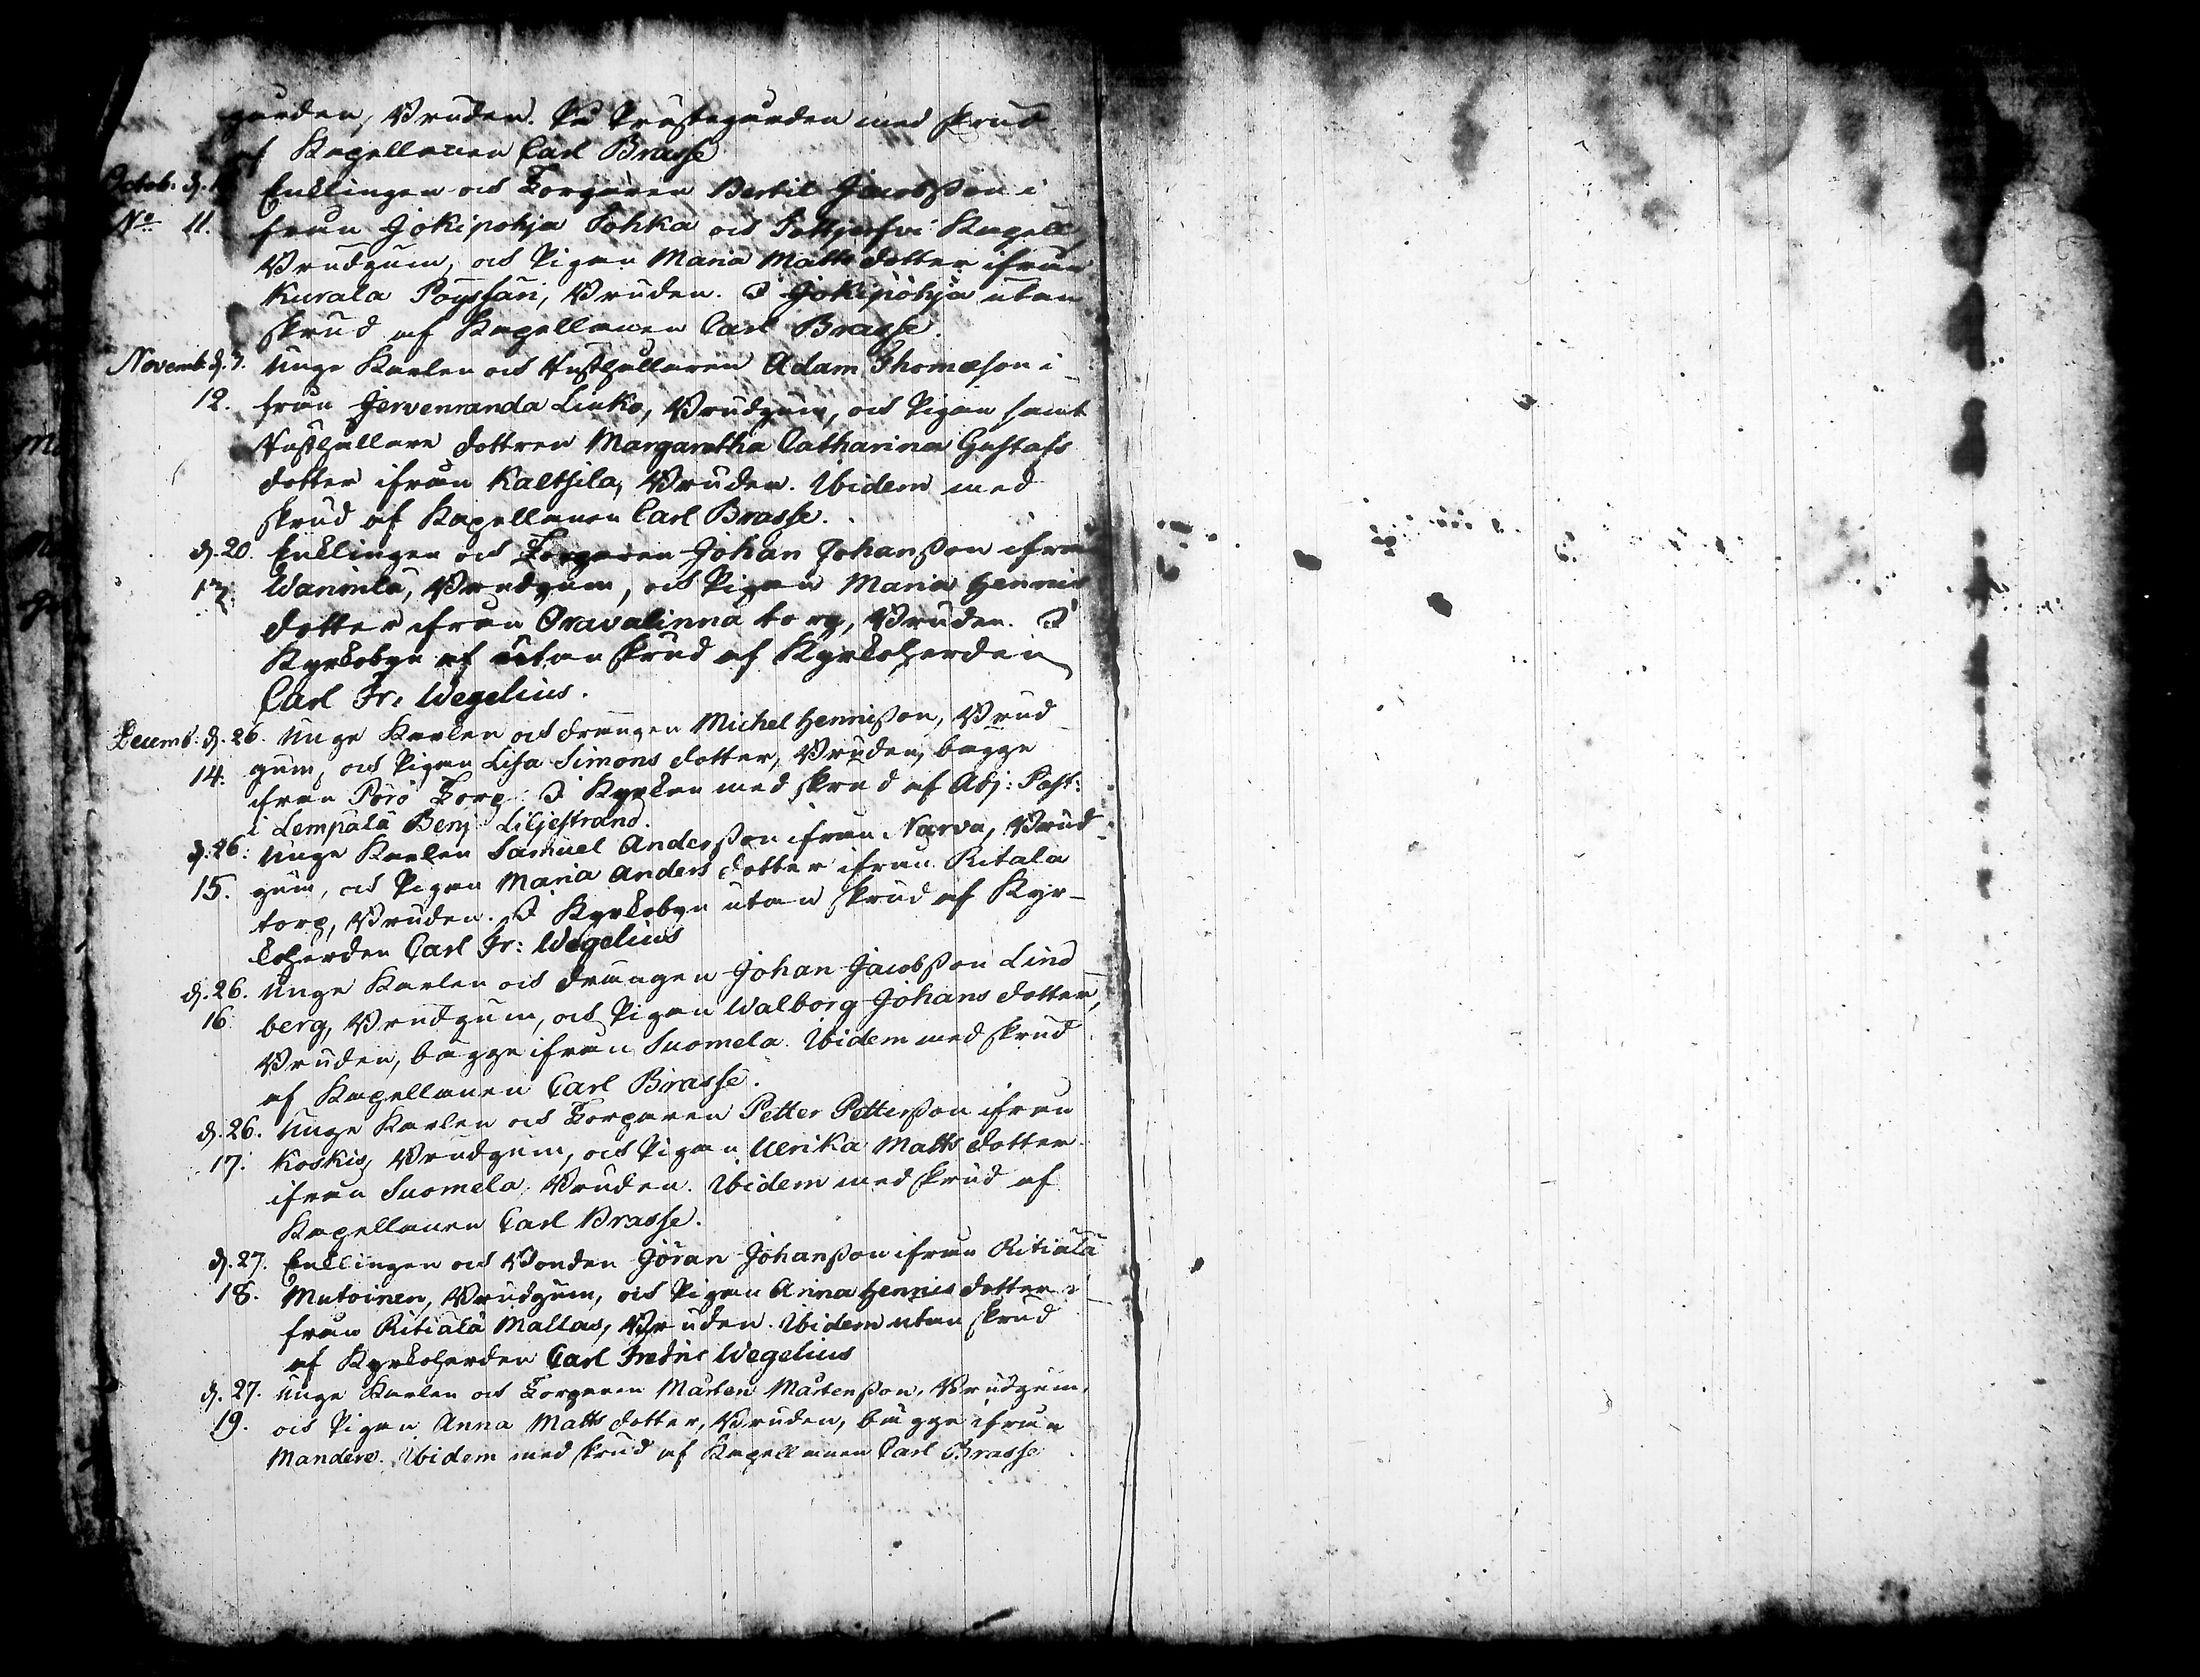 gården, Bruden. På Prästegården med skrud
af Kapellanen Carl Brasse
Octob. d. Enklingen och Torparen Bertil Jacobsson i
No 11. från Jokipohja Tohka och Tottjerfvi Kapell,
Brudgum, och Pigan Maria Matts dotter ifrån
Kurala Pöyssäri, Bruden. I Jokipohja utan
skrud af Kapellanen Carl Brasse.
Novemb. d. 3. Unge Karlen och Husthållaren Adam Thomæson i
12. från Jervenranda Linko, Brudgum, och Pigan samt
Husthållare dottren Margaretha Catharina Gustafs
dotter ifrån Kaltsila, Bruden. Ibidem med
skrud af Kapellanen Carl Brasse.
d. 20. Enklingen och Torparen Johan Johansson ifrån
13. Wanimla, Brudgum, och Pigan Maria Henrics
dotter ifrån Oravalinna torp, Bruden. I
Kyrkobyn af utan skrud af Kyrkoherden
Carl Fr: Wegelius.
Decemb: d. 26. Unge Karlen och drängen Michel Henrisson, Brud
14. gum, och Pigan Lisa Simons dotter, Bruden, bägge
ifrån Pörö Torp. I Kyrkan med skrud af Adj: Past:
i Lempälä Benj: Liljestrand.
d: 26: Unge Karlen Samuel Andersson ifrån Narva, Brud
15. gum, och Pigan Maria Anders dotter ifrån Ritala
torp, Bruden. I Kyrkobyn utan skrud af Kyr-
koherden Carl Fr: Wegelius
d. 26. Unge Karlen och drängen Johan Jacobsson Lind
16. berg, Brudgum, och Pigan Walborg Johans dotter,
Bruden, bägge ifrån Suomela. Ibidem med skrud
af Kapellanen Carl Brasse.
d. 26. Unge Karlen och Torparen Petter Pettersson ifrån
17. Koskis, Brudgum, och Pigan Ulrika Matts dotter
ifrån Suomela, Bruden. Ibidem med skrud af
Kapellanen Carl Brasse.
d. 27. Enklingen och Bonden Göran Johansson ifrån Ritiälä
18. Mutoinen, Brudgum, och Pigan Anna Henrics dotter i
från Ritiälä Mallas, Bruden. Ibidem utan skrud
af Kyrkoherden Carl Fredric Wegelius
d. 27. Unge Karlen och Torparen Mårten Mårtensson, Brudgum,
19. och Pigan Anna Matts dotter, Bruden, bägge ifrån
Manders. Ibidem med skrud af Kapellanen Carl Brasse